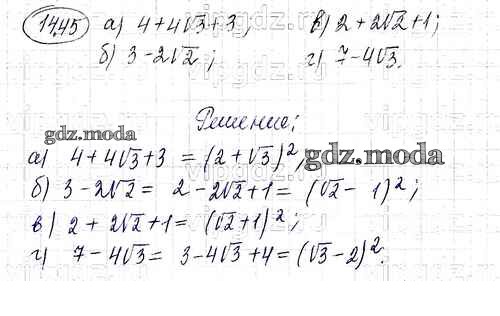 14.45 а) 4+4√3+3; в) 2+2√2+1;
б) 3-2√2; г) 7-4√3.
Решение:
gdz.moda
а) 4+4√3+3 = (2+√3)²; gdz.moda
б) 3-2√2 = 2-2√2+1 = (√2-1)²;
в) 2+2√2+1 = (√2+1)²;
г) 7-4√3 = 3-4√3+4 = (√3-2)².